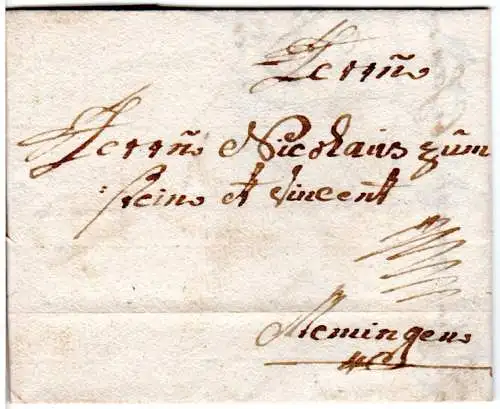 Herrn̄
Herrn̄ Nicolaus zum
stein et Vincent
Memingen